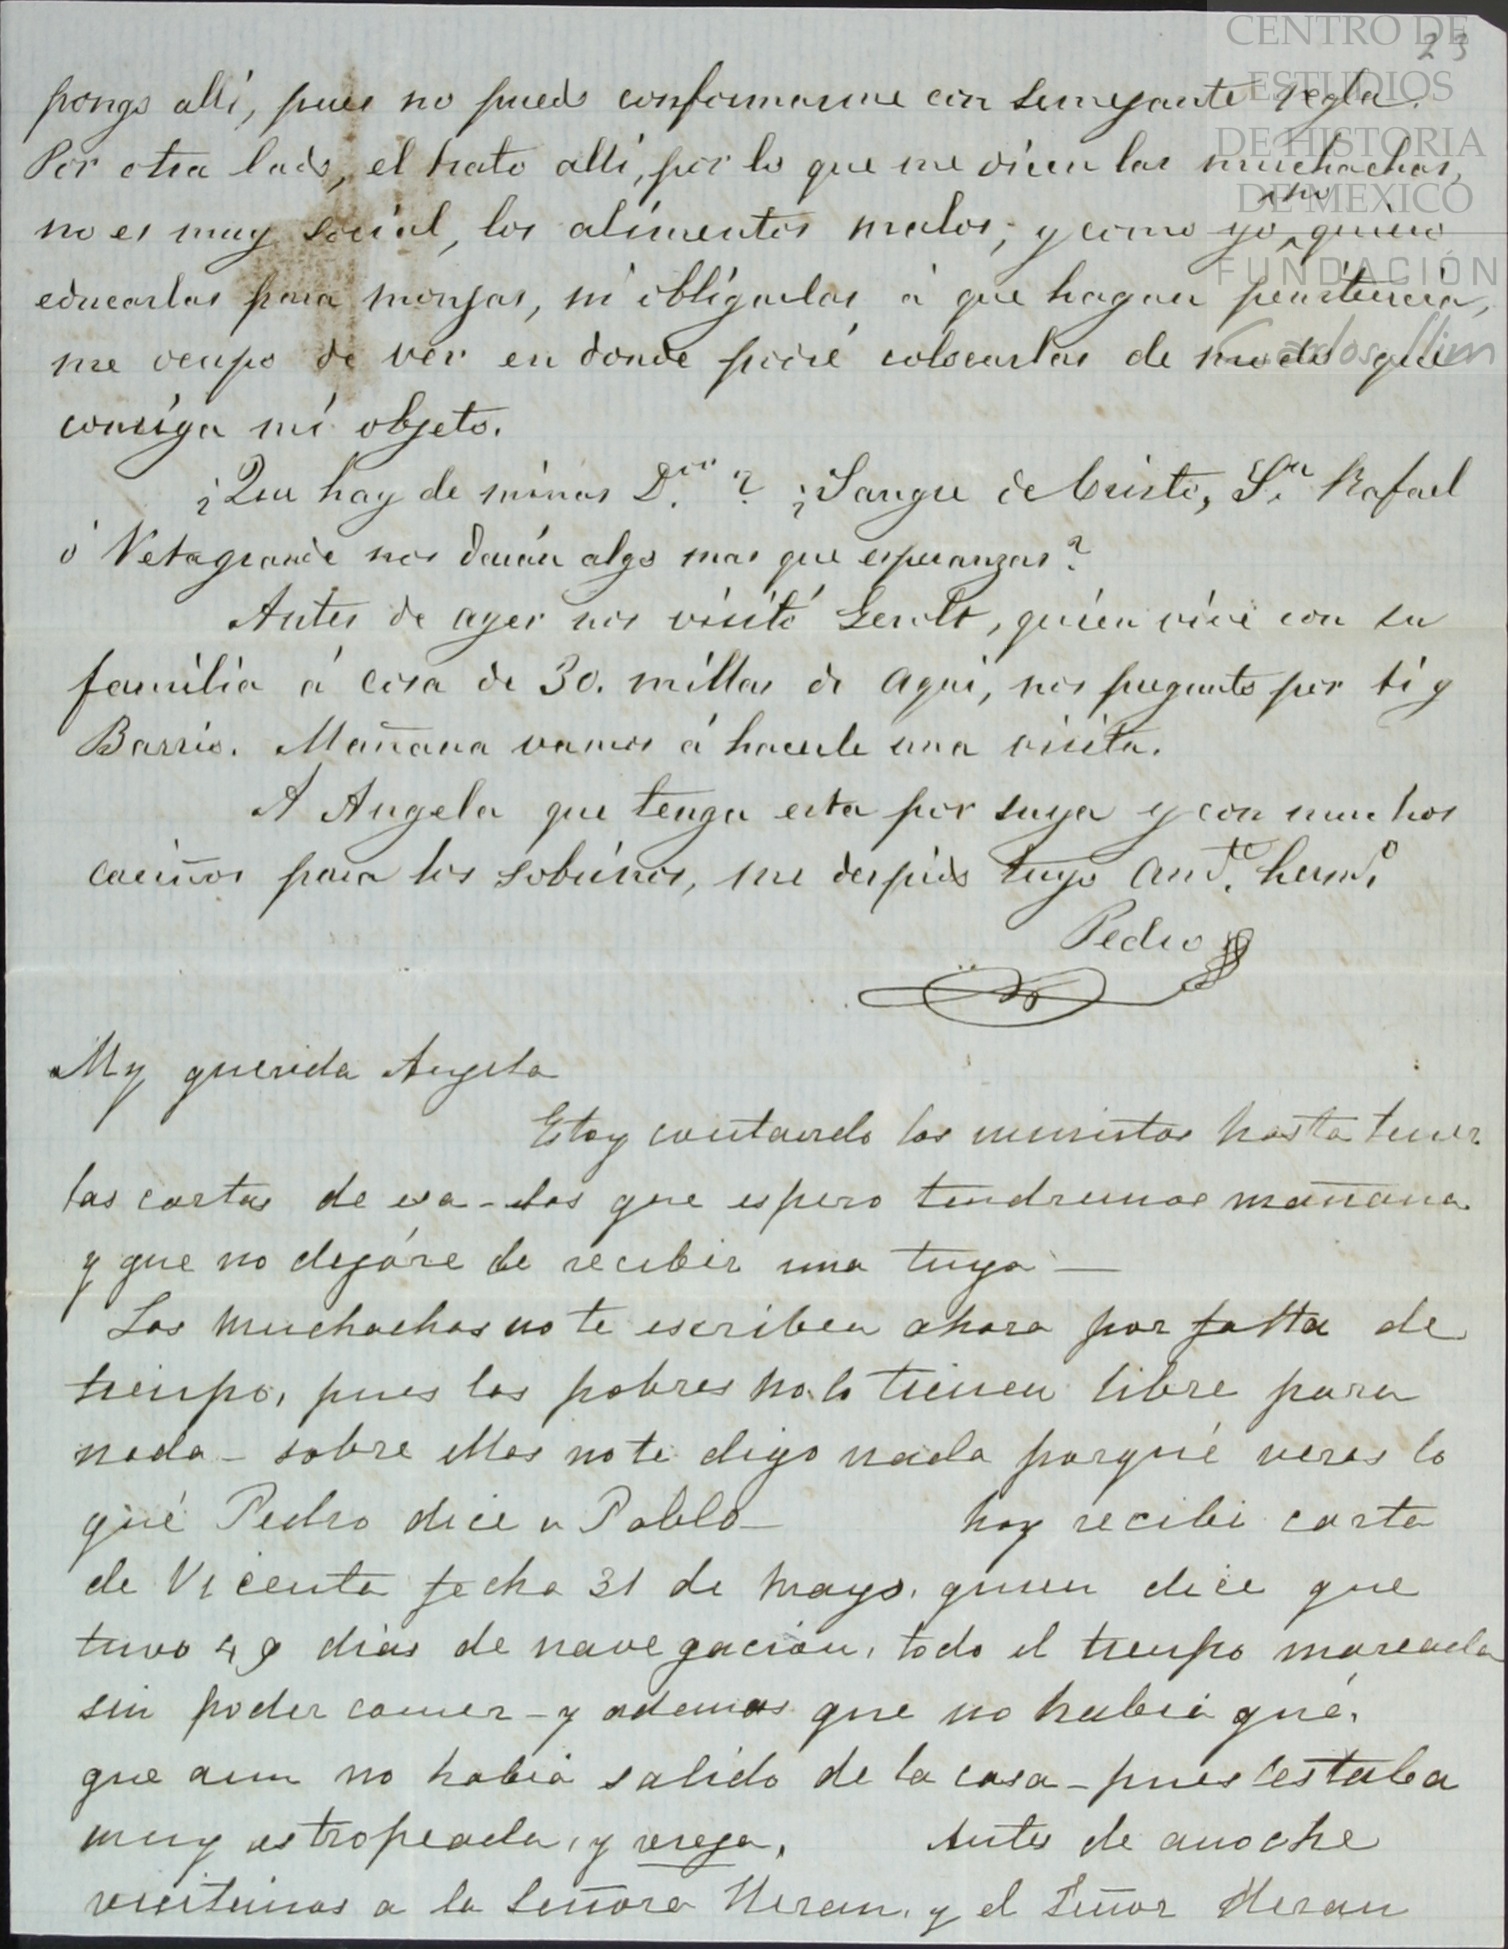 CENTRO DE
ESTUDIOS
DE HISTORIA
DE MEXICO
FUNDACIÓN
Carlos Slim
23
pongo allí, pues no puedo conformarme con semejante regla.
Por otra lado, el trato allí, por lo que me dicen las muchachas,
no es muy social, los alimentos malos; y como yo no quiero
educarlas para monjas, ni obligarlas á que hagan penitencia,
me ocupo de ver en donde podré colocarlas de modo que
consiga mi objeto.
¿Que hay de minas D.n? ¿Sangre de Cristo, S.n Rafael
ó Vetagrande nos darán algo mas que esperanzas?
Antes de ayer nos visitó Gerolt, quien vive con su
familia á cosa de 30. millas de aqui, nos preguntó por ti y
Barrio. Mañana vamos á hacerle una visita.
A Angela que tenga esta por suya y con muchos
cariños para los sobrinos, me despido tuyo am.te herm.o
Pedro
My querida Angela
Estoy contando los minutos hasta tener
las cartas de esa - las que espero tendremos mañana
y que no dejáre de recibir una tuya —
Las muchachas no te escriben ahora por falta de
tiempo, pues las pobres no lo tienen libre para
nada - sobre ellas no te digo nada porqué veras lo
qué Pedro dice a Pablo - hoy recibi carta
de Vicenta fecha 31 de mayo, quien dice que
tuvo 49 dias de navegacion, todo el tiempo mareada
sin poder comer - y ademas que no habia qué,
que aun no habia salido de la casa - pues estaba
muy estropeada, y vieja, Antes de anoche
visitamos a la Señora Heran, y el Señor Heran